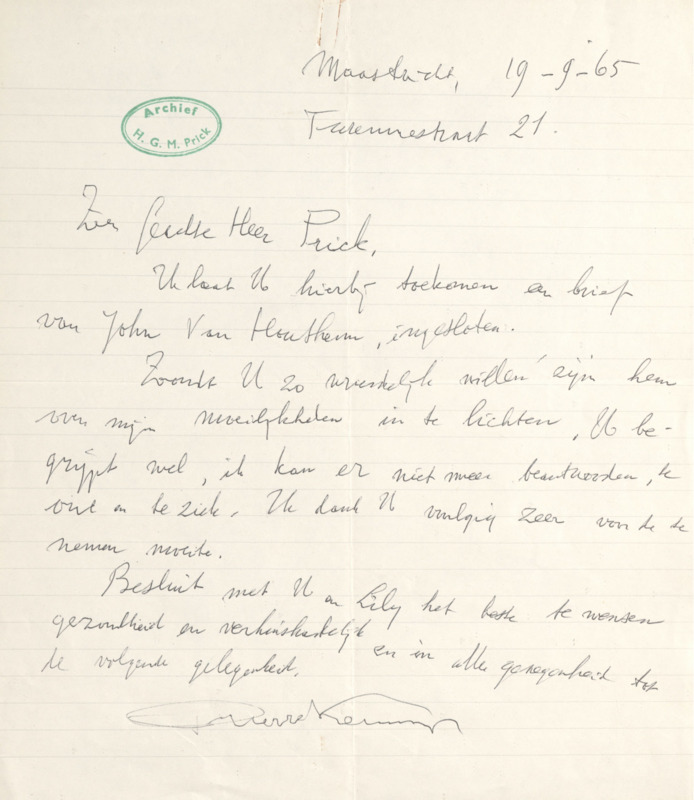 Maastricht, 19-9-65
Archief
H. G. M. Prick
Turennestraat 21.
Zeer Geachte Heer Prick,
Ik laat U hierbij toekomen en brief
van John Van Houthem, ingesloten.
Zoondt U zo vriendelijk willen zijn hem
over mijn moeilijkheden in te lichten, U be-
grijpt wel, ik kan er niet meer beantwoorden, te
oud en te ziek. Ik dank U voorlopig zeer voor de te
nemen moeite.
Besluit met U en Lily het beste te wensen
gezondheid en en in alle genegenheid tot
de volgende gelegenheid.
Pierre Kemp